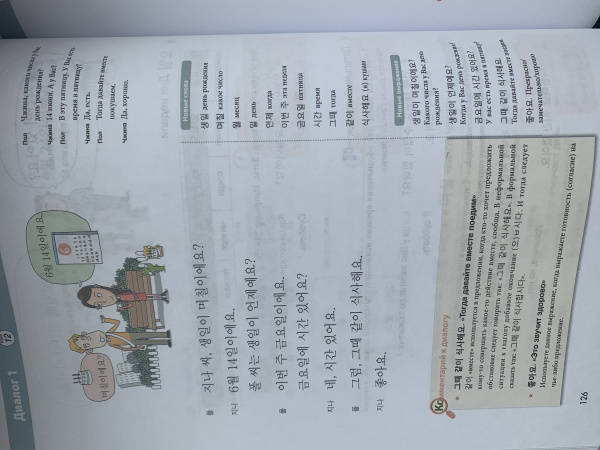 Диалог 1
12
며칠이에요?
6월 14일이에요.
폴 지나 씨, 생일이 며칠이에요?
지나 6월 14일이에요.
폴 씨는 생일이 언제예요?
폴 이번 주 금요일이에요.
금요일에 시간 있어요?
지나 네, 시간 있어요.
폴 그럼, 그때 같이 식사해요.
지나 좋아요.
Пол Чжина, какого числа у Вас
день рождения?
Чжина 14 июня. А у Вас?
Пол В эту пятницу. У Вас есть
время в пятницу?
Чжина Да, есть.
Пол Тогда давайте вместе
покушаем.
Чжина Да, хорошо.
Новые слова
생일 день рождения
며칠 какое число
월 месяц
일 день
언제 когда
이번 주 эта неделя
금요일 пятница
시간 время
그때 тогда
같이 вместе
식사해요. (я) кушаю
Новые выражения
생일이 며칠이에요?
Какого числа у Вас день
рождения?
생일이 언제예요?
Когда у Вас день рождения?
금요일에 시간 있어요?
У вас есть время в пятницу?
그때 같이 식사해요.
Тогда давайте вместе
좋아요. Прекрасно/
замечательно/хорошо
Комментарий к диалогу
• 그때 같이 식사해요. «Тогда давайте вместе поедим»
같이 «вместе» используется в предложении, когда кто-то хочет предложить
кому-то совершить какое-то действие вместе, сообща. В неформальной
обстановке следует говорить так: «그때 같이 식사해요». В формальной
ситуации к глаголу добавьте окончание (으)ㅂ시다. И тогда следует
сказать так: «그때 같이 식사합시다».
• 좋아요. «Это звучит здорово»
Используйте данное выражение, когда выражаете готовность (согласие) на
чье-либо предложение.
126